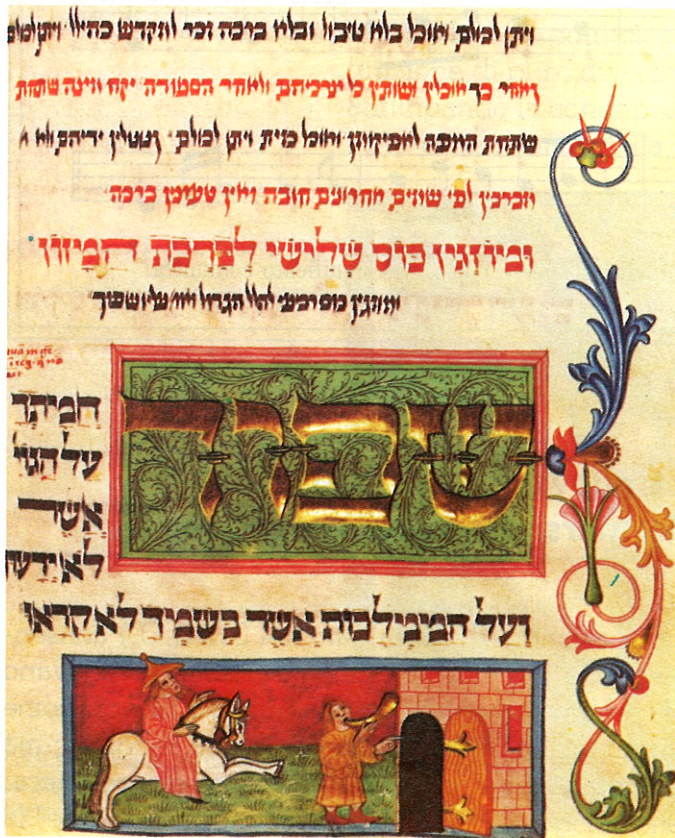 ויתן לכולם ויאכל בלא טיבול ובלא ברכה זכר למקדש כהילל ויתן לכולם
ואחר כך אוכלין ושותין כל צרכיהם ולאחר הסעודה יקח מצה שתחת
שתחת המפה לאפיקומן ויאכל כזית ויתן לכולם ונוטלין ידיהם ולא
ומברכין לפי שמים אחרונים חובה ואין טעונין ברכה
וּמיוזגין כוס שְלישי לבִרכת המָיזון
ומוזגין כוס רביעי להלל הגדול עליו שפוך
שפוך
חמיתך
על הגוי
אֲשר
לא ידעו
וְעל המימילכות אֲשר בְשמיך לא קראו